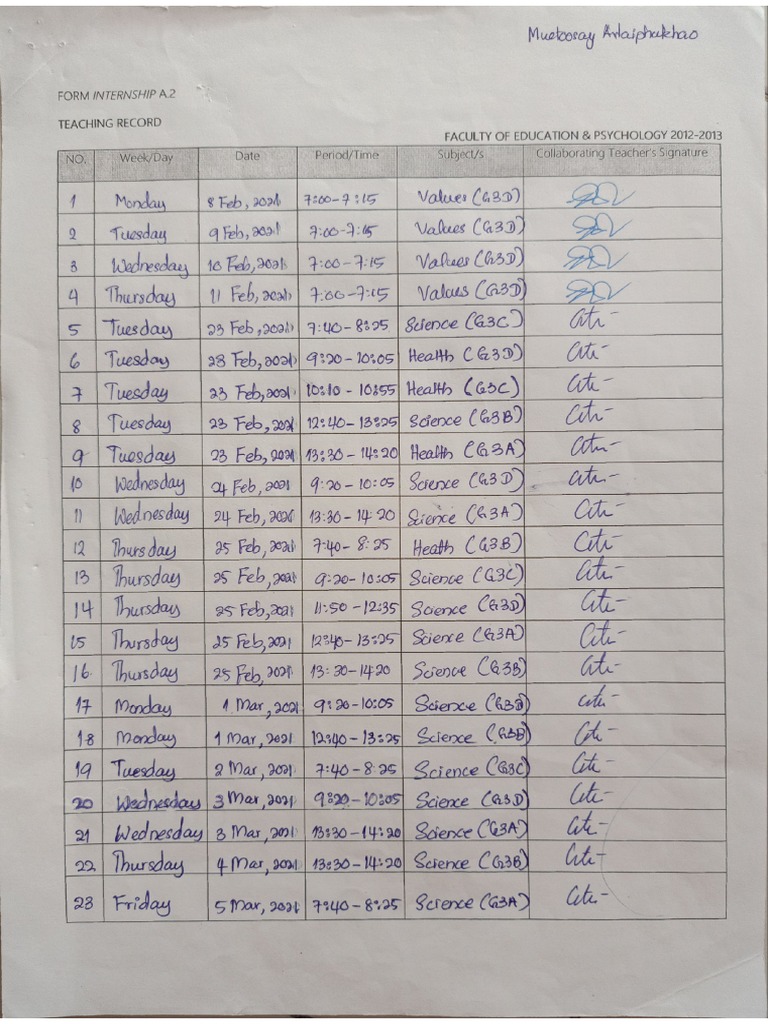 FORM INTERNSHIP A.2
TEACHING RECORD
FACULTY OF EDUCATION & PSYCHOLOGY 2012-2013
NO. Week/Day Date Period/Time Subject/s Collaborating Teacher's Signature
1 Monday 8 Feb, 2021 7:00-7:15 Values (G3D)
2 Tuesday 9 Feb, 2021 7:00-7:15 Values (G3D)
3 Wednesday 10 Feb, 2021 7:00-7:15 Values (G3D)
4 Thursday 11 Feb, 2021 7:00-7:15 Values (G3D)
5 Tuesday 23 Feb, 2021 7:40-8:25 Science (G3C)
6 Tuesday 23 Feb, 2021 9:20-10:05 Health (G3D)
7 Tuesday 23 Feb, 2021 10:10-10:55 Health (G3C)
8 Tuesday 23 Feb, 2021 12:40-13:25 Science (G3B)
9 Tuesday 23 Feb, 2021 13:30-14:20 Health (G3A)
10 Wednesday 24 Feb, 2021 9:20-10:05 Science (G3D)
11 Wednesday 24 Feb, 2021 13:30-14:20 Science (G3A)
12 Thursday 25 Feb, 2021 7:40-8:25 Health (G3B)
13 Thursday 25 Feb, 2021 9:20-10:05 Science (G3C)
14 Thursday 25 Feb, 2021 11:50-12:35 Science (G3D)
15 Thursday 25 Feb, 2021 12:40-13:25 Science (G3A)
16 Thursday 25 Feb, 2021 13:30-1420 Science (G3B)
17 Monday 1 Mar, 2021 9:20-10:05 Science (G3D)
18 Monday 1 Mar, 2021 12:40-13:25 Science (G3B)
19 Tuesday 2 Mar, 2021 7:40-8:25 Science (G3C)
20 Wednesday 3 Mar, 2021 9:20-10:05 Science (G3D)
21 Wednesday 3 Mar, 2021 13:30-14:20 Science (G3A)
22 Thursday 4 Mar, 2021 13:30-14:20 Science (G3B)
23 Friday 5 Mar, 2021 7:40-8:25 Science (G3A)